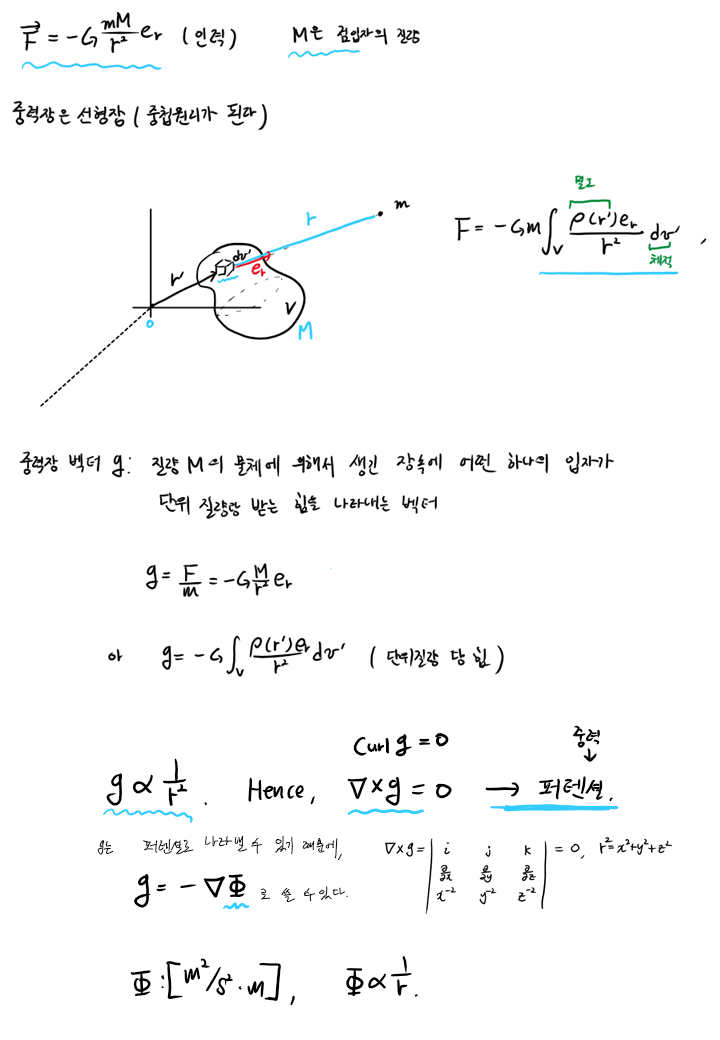 F = -G mM/r² e_r (인력) M은 점입자의 질량
중력장은 선형장 (중첩원리가 된다)
m
r
밀도
F = -Gm ∫_V ρ(r')e_r/r² dv' ,
체적
dv'
e_r
r'
V
M
0
중력장 벡터 g: 질량 M의 물체에 의해서 생긴 장속에 어떤 하나의 입자가
단위 질량당 받는 힘을 나타내는 벡터
g = F/m = -G M/r² e_r
or g = -G ∫_V ρ(r')e_r/r² dv' (단위질량 당 힘)
Curl g = 0 중력 ↓
g ∝ 1/r² . Hence, ∇×g = 0 → 퍼텐셜.
g는 퍼텐셜로 나타낼 수 있기 때문에, ∇×g = | i j k | = 0, r²=x²+y²+z²
∂/∂x ∂/∂y ∂/∂z
x⁻² y⁻² z⁻²
g = -∇Φ 로 쓸 수 있다.
Φ : [m²/s² · m], Φ ∝ 1/r.